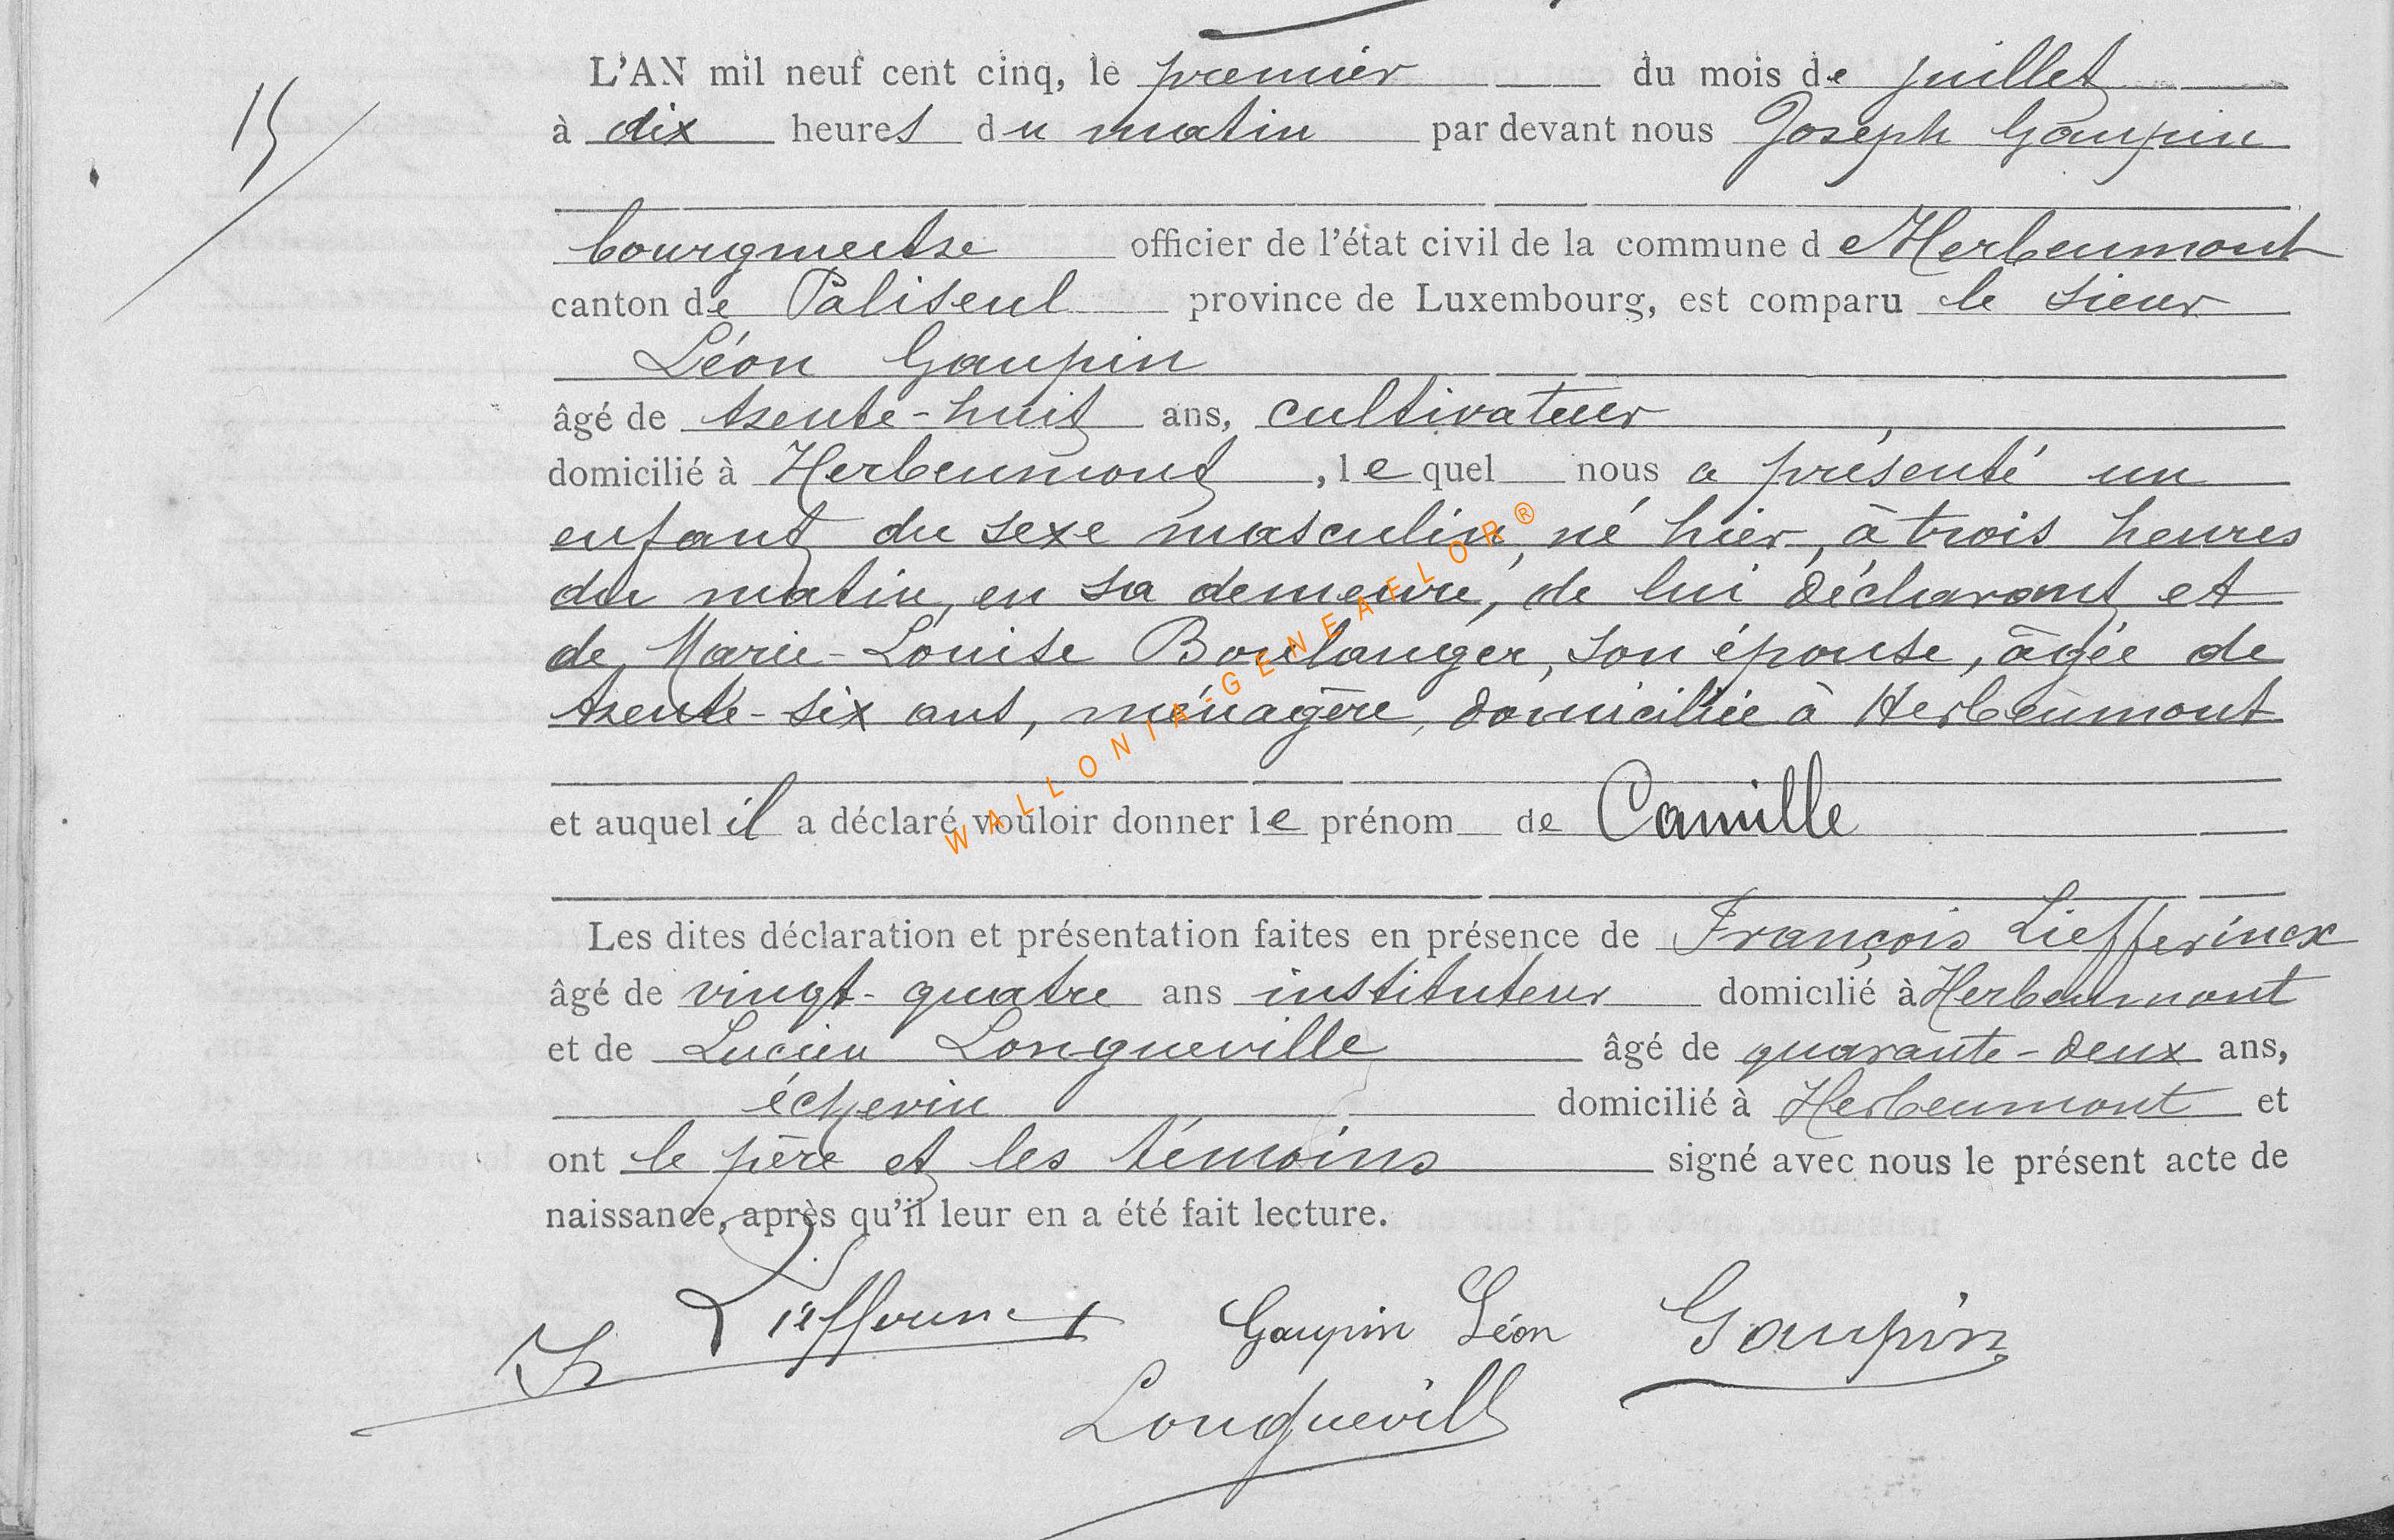 15
L'AN mil neuf cent cinq, le premier du mois de juillet
à dix heures du matin par devant nous Joseph Gaupin
bourgmestre officier de l'état civil de la commune d eHerbeumont
canton de Paliseul province de Luxembourg, est comparu le sieur
Léon Gaupin
âgé de trente-huit ans, cultivateur,
domicilié à Herbeumont, lequel nous a présenté un
enfant du sexe masculin, né hier, à trois heures
du matin, en sa demeure, de lui déclarant et
de Marie-Louise Boulanger, son épouse, âgée de
trente-six ans, ménagère, domiciliée à Herbeumont
et auquel il a déclaré vouloir donner le prénom de Camille
Les dites déclaration et présentation faites en présence de François Liefferinckx
âgé de vingt-quatre ans instituteur domicilié à Herbeumont
et de Lucien Longueville âgé de quarante-deux ans,
échevin domicilié à Herbeumont et
ont le père et les témoins signé avec nous le présent acte de
naissance, après qu'il leur en a été fait lecture.
Gaupin Léon Gaupin
Longuevill
WALLONIA-GENEAFLOR®